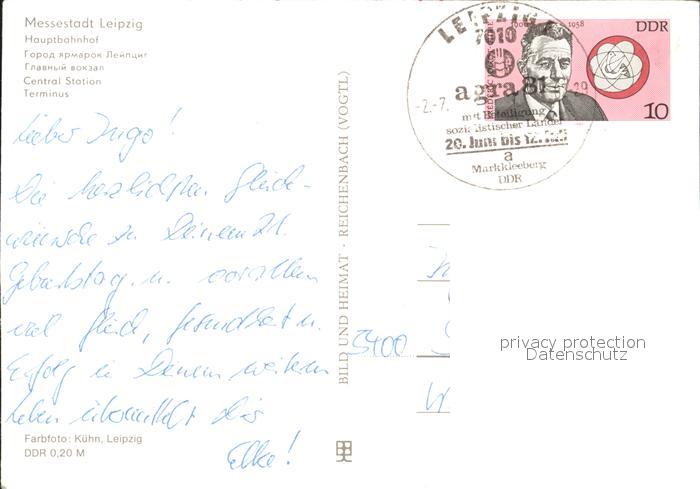 Messestadt Leipzig
Hauptbahnhof
Город ярмарок Лейпциг
Главный вокзал
Central Station
Terminus
Lieber Ingo!
Die herzlichsten Glück-
wünsche zu Deinem 21.
Geburtstag u. vor allem
viel Glück, Gesundheit u.
Erfolg in Deinem weiteren
Leben übermittelt dir
Elke!
Farbfoto: Kühn, Leipzig
DDR 0,20 M
BILD UND HEIMAT · REICHENBACH (VOGTL)
LEIPZIG
7010
agra 81
-2.-7.
mit Beteiligung
sozialistischer Länder
20. Juni bis 12. Juli
a
Markkleeberg
DDR
1958
DDR
10
5400
privacy protection
Datenschutz